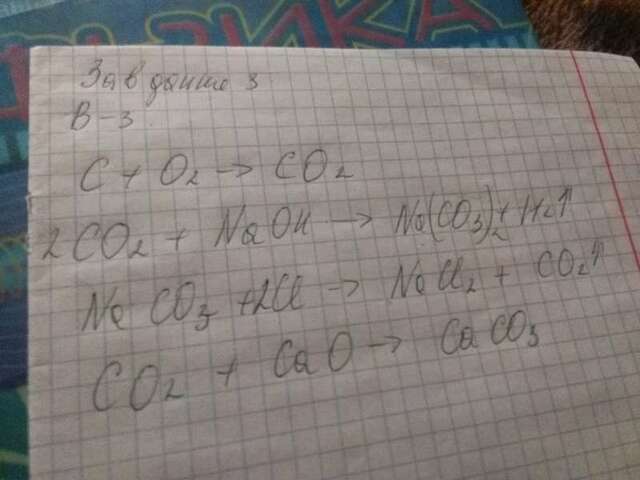 Завдання 3
В-3
C + O₂ → CO₂
2CO₂ + NaOH → Na(CO₃)₂ + H₂↑
Na CO₃ + 2Cl → NaCl₂ + CO₂↑
CO₂ + CaO → CaCO₃